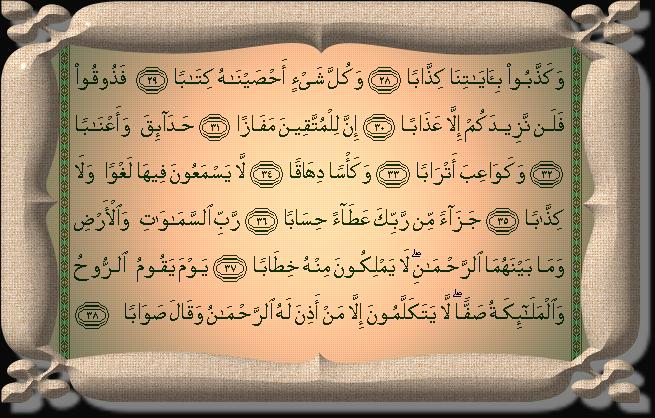 وَكَذَّبُوا۟ بِـَٔايَـٰتِنَا كِذَّابًا ٢٨ وَكُلَّ شَىْءٍ أَحْصَيْنَـٰهُ كِتَـٰبًا ٢٩ فَذُوقُوا۟
فَلَن نَّزِيدَكُمْ إِلَّا عَذَابًا ٣٠ إِنَّ لِلْمُتَّقِينَ مَفَازًا ٣١ حَدَآئِقَ وَأَعْنَـٰبًا
٣٢ وَكَوَاعِبَ أَتْرَابًا ٣٣ وَكَأْسًا دِهَاقًا ٣٤ لَّا يَسْمَعُونَ فِيهَا لَغْوًا وَلَا
كِذَّٰبًا ٣٥ جَزَآءً مِّن رَّبِّكَ عَطَآءً حِسَابًا ٣٦ رَّبِّ ٱلسَّمَـٰوَٰتِ وَٱلْأَرْضِ
وَمَا بَيْنَهُمَا ٱلرَّحْمَـٰنِ ۖ لَا يَمْلِكُونَ مِنْهُ خِطَابًا ٣٧ يَوْمَ يَقُومُ ٱلرُّوحُ
وَٱلْمَلَـٰٓئِكَةُ صَفًّا ۖ لَّا يَتَكَلَّمُونَ إِلَّا مَنْ أَذِنَ لَهُ ٱلرَّحْمَـٰنُ وَقَالَ صَوَابًا ٣٨